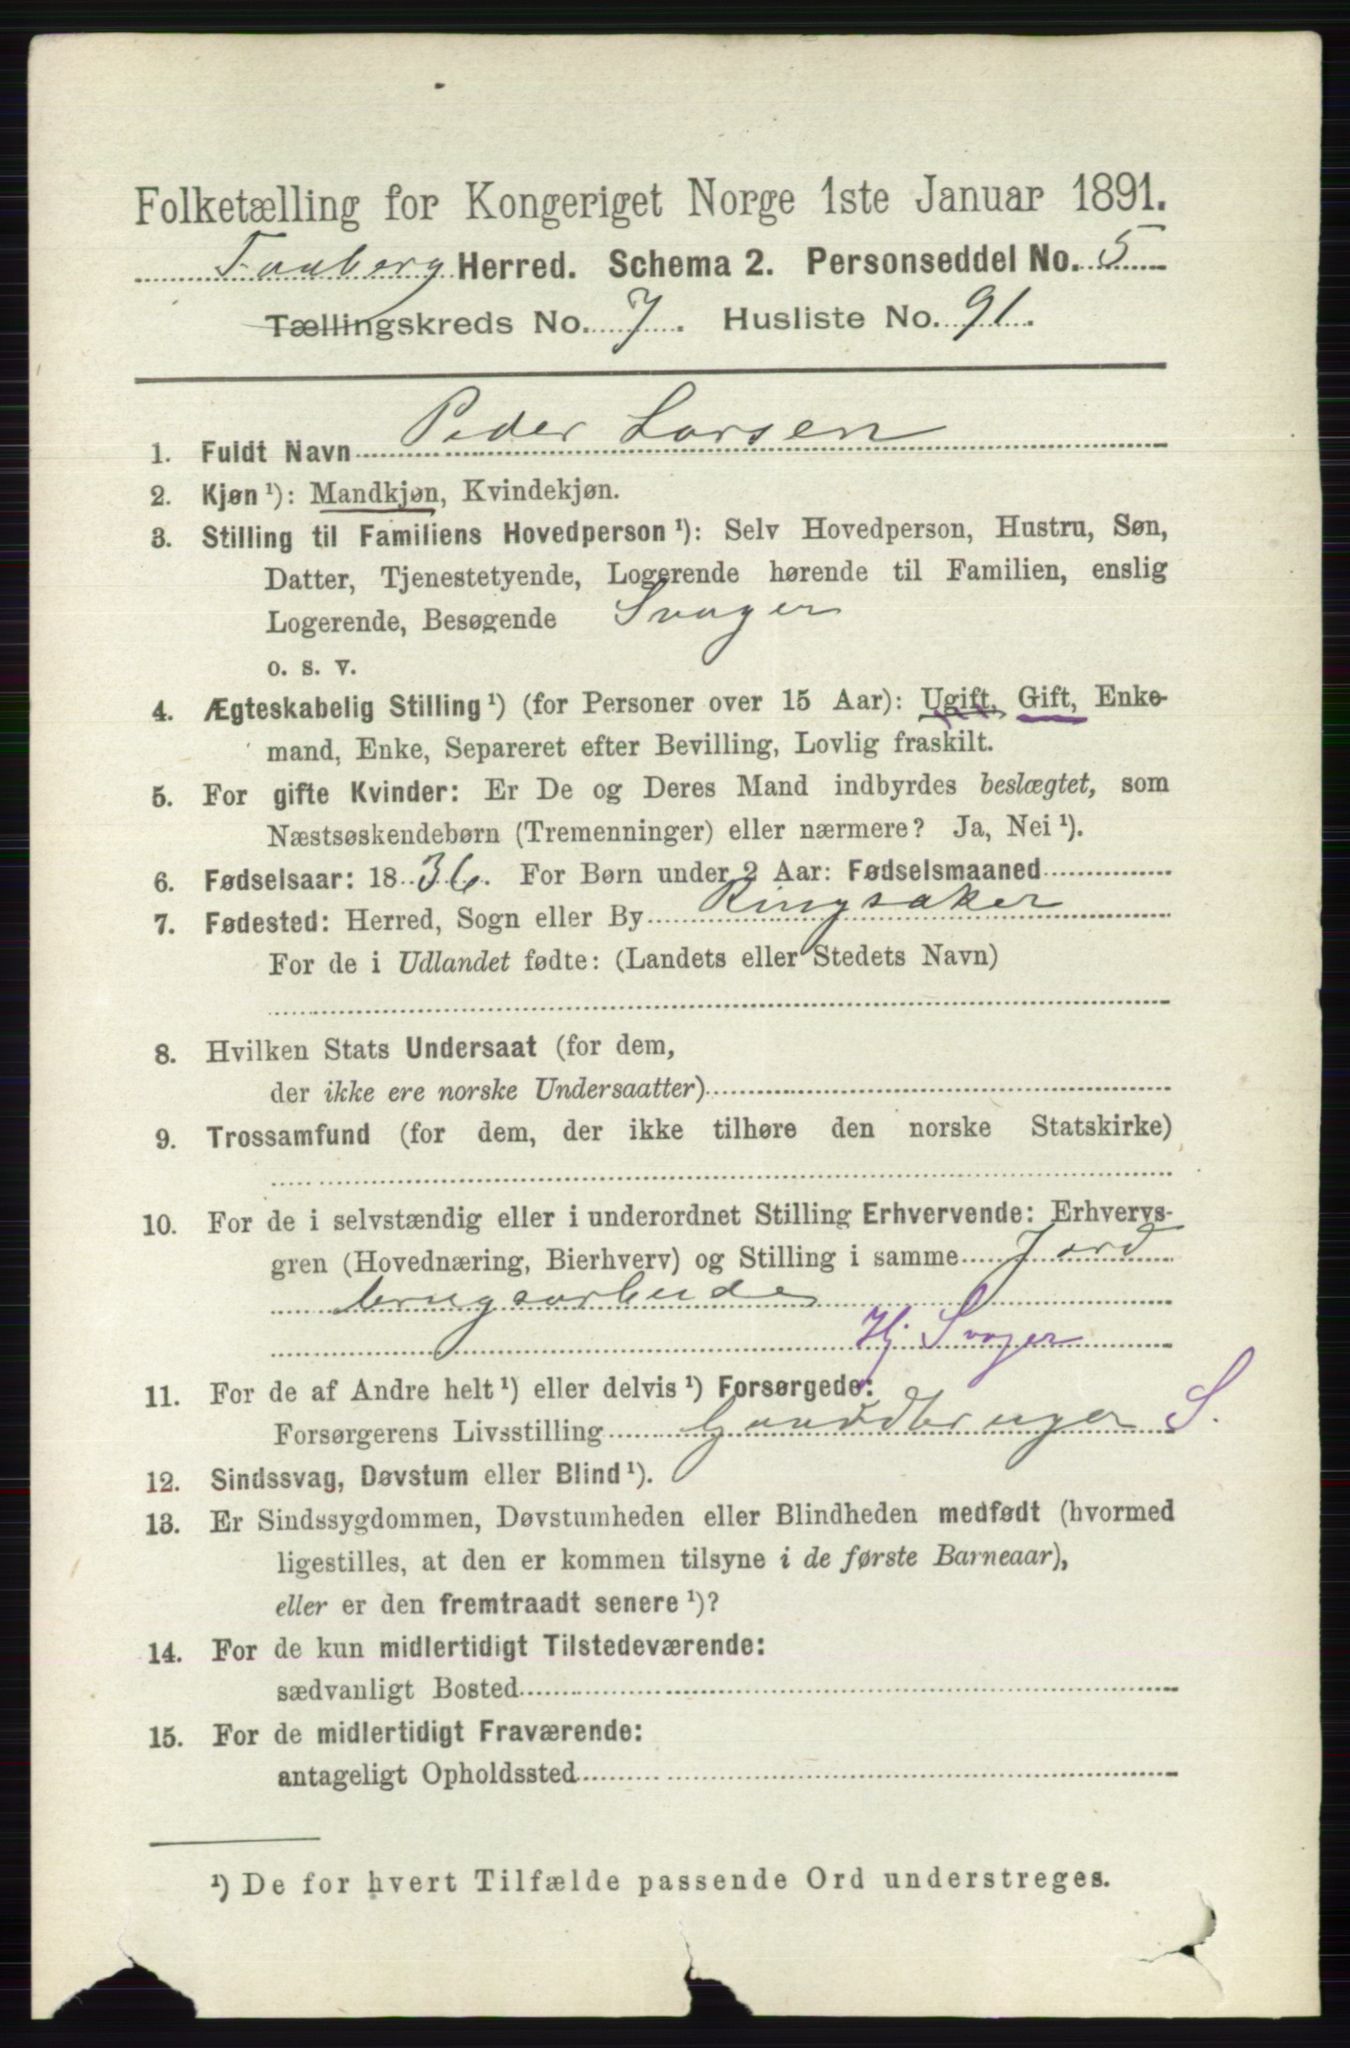 Folketælling for Kongeriget Norge 1ste Januar 1891.
Faaberg Herred. Schema 2. Personseddel No. 5
Tællingskreds No. 7. Husliste No. 91.
1. Fuldt Navn Peder Larsen
2. Kjøn ¹): Mandkjøn, Kvindekjøn.
3. Stilling til Familiens Hovedperson ¹): Selv Hovedperson, Hustru, Søn,
Datter, Tjenestetyende, Logerende hørende til Familien, enslig
Logerende, Besøgende Svoger
o. s. v.
4. Ægteskabelig Stilling ¹) (for Personer over 15 Aar): Ugift, Gift, Enke-
mand, Enke, Separeret efter Bevilling, Lovlig fraskilt.
5. For gifte Kvinder: Er De og Deres Mand indbyrdes beslægtet, som
Næstsøskendebørn (Tremenninger) eller nærmere? Ja, Nei ¹).
6. Fødselsaar: 1836. For Børn under 2 Aar: Fødselsmaaned
7. Fødested: Herred, Sogn eller By Ringsaker
For de i Udlandet fødte: (Landets eller Stedets Navn)
8. Hvilken Stats Undersaat (for dem,
der ikke ere norske Undersaatter)
9. Trossamfund (for dem, der ikke tilhøre den norske Statskirke)
10. For de i selvstændig eller i underordnet Stilling Erhvervende: Erhvervs-
gren (Hovednæring, Bierhverv) og Stilling i samme Jord
brugsarbeide
Hj Svoger
11. For de af Andre helt ¹) eller delvis ¹) Forsørgede:
Forsørgerens Livsstilling Gaardbruger S.
12. Sindssvag, Døvstum eller Blind ¹).
13. Er Sindssygdommen, Døvstumheden eller Blindheden medfødt (hvormed
ligestilles, at den er kommen tilsyne i de første Barneaar),
eller er den fremtraadt senere ¹)?
14. For de kun midlertidigt Tilstedeværende:
sædvanligt Bosted
15. For de midlertidigt Fraværende:
antageligt Opholdssted
¹) De for hvert Tilfælde passende Ord understreges.